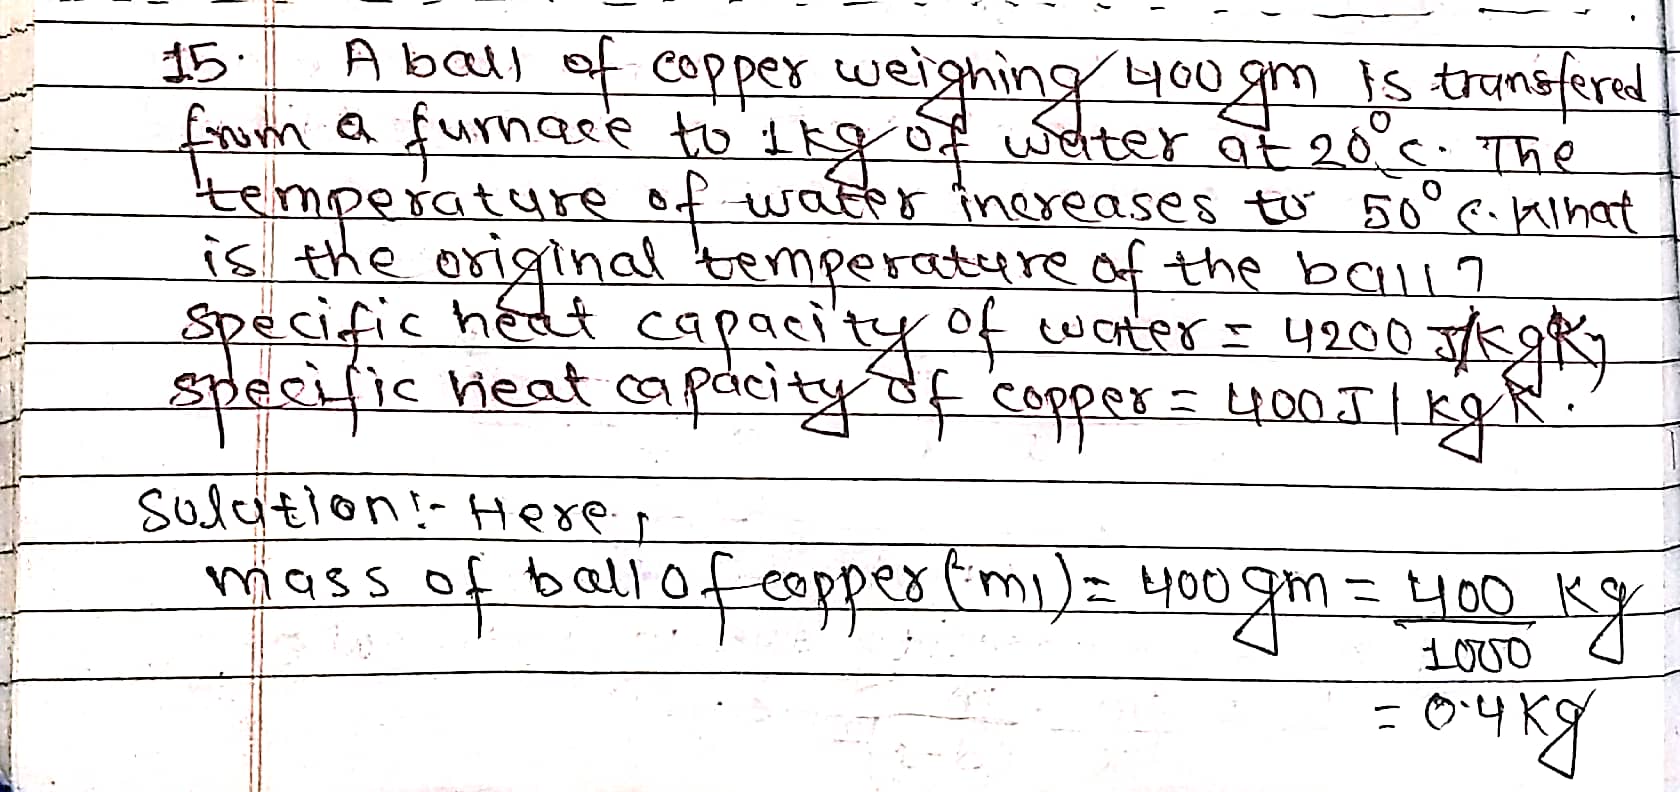 15. A ball of copper weighing 400 gm is transfered
from a furnace to 1kg of water at 20°c. The
temperature of water increases to 50°c. What
is the original temperature of the ball?
specific heat capacity of water = 4200 J/kgK,
specific heat capacity of copper = 400J/kgK.
Solution:- Here,
mass of ball of copper (m1) = 400 gm = 400 kg
1000
= 0.4 kg